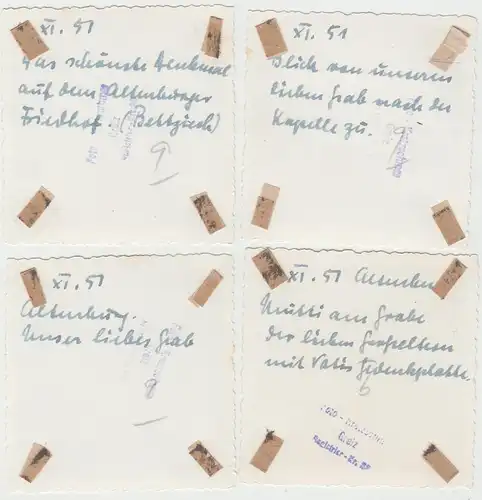 XI. 51
Das schönste Denkmal
auf dem Altenburger
Friedhof (Bettziech)
9
XI. 51
Blick von unserem
lieben Grab nach der
Kapelle zu.
9
XI. 51
Altenburg.
Unser liebes Grab
8
XI. 51 Altenbu
Mutti am Grabe
der lieben
mit Vatis Gedenkplatte.
6
Foto-
Greiz